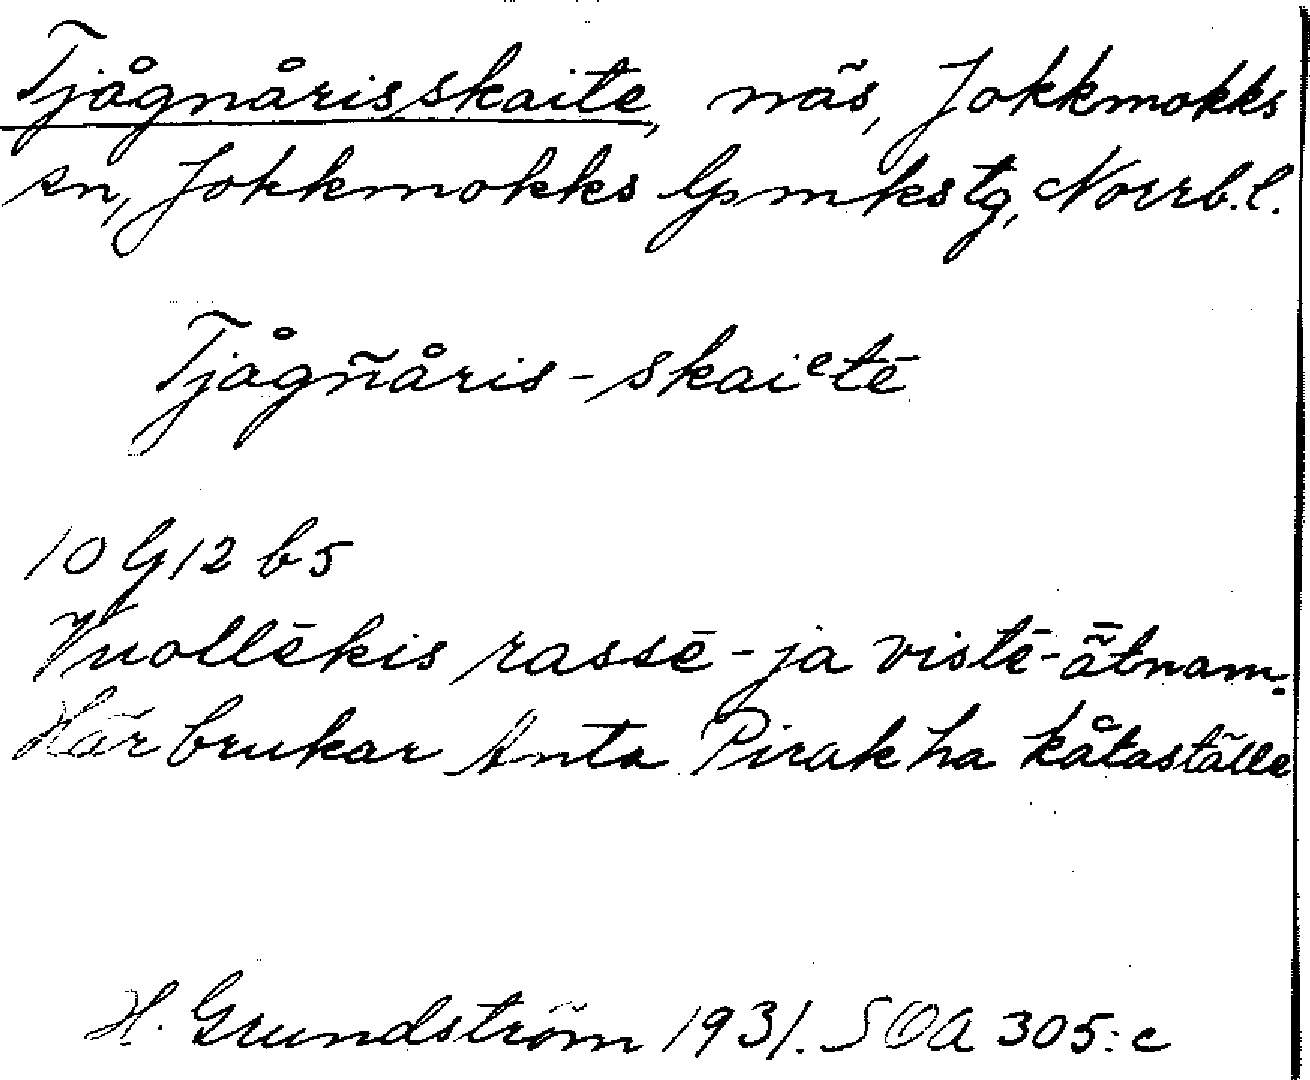 Tjågnårisskaite, näs, Jokkmokks
sn, Jokkmokks lpmkstg, Norrb.l.
Tjågñåris-skaiᵉtē
10 G 12 b 5
Vuollēkis rassē- ja vistē-ǟtnam.
Här brukar Anta Pirak ha kåtaställe
H. Grundström 1931. SOA 305:c